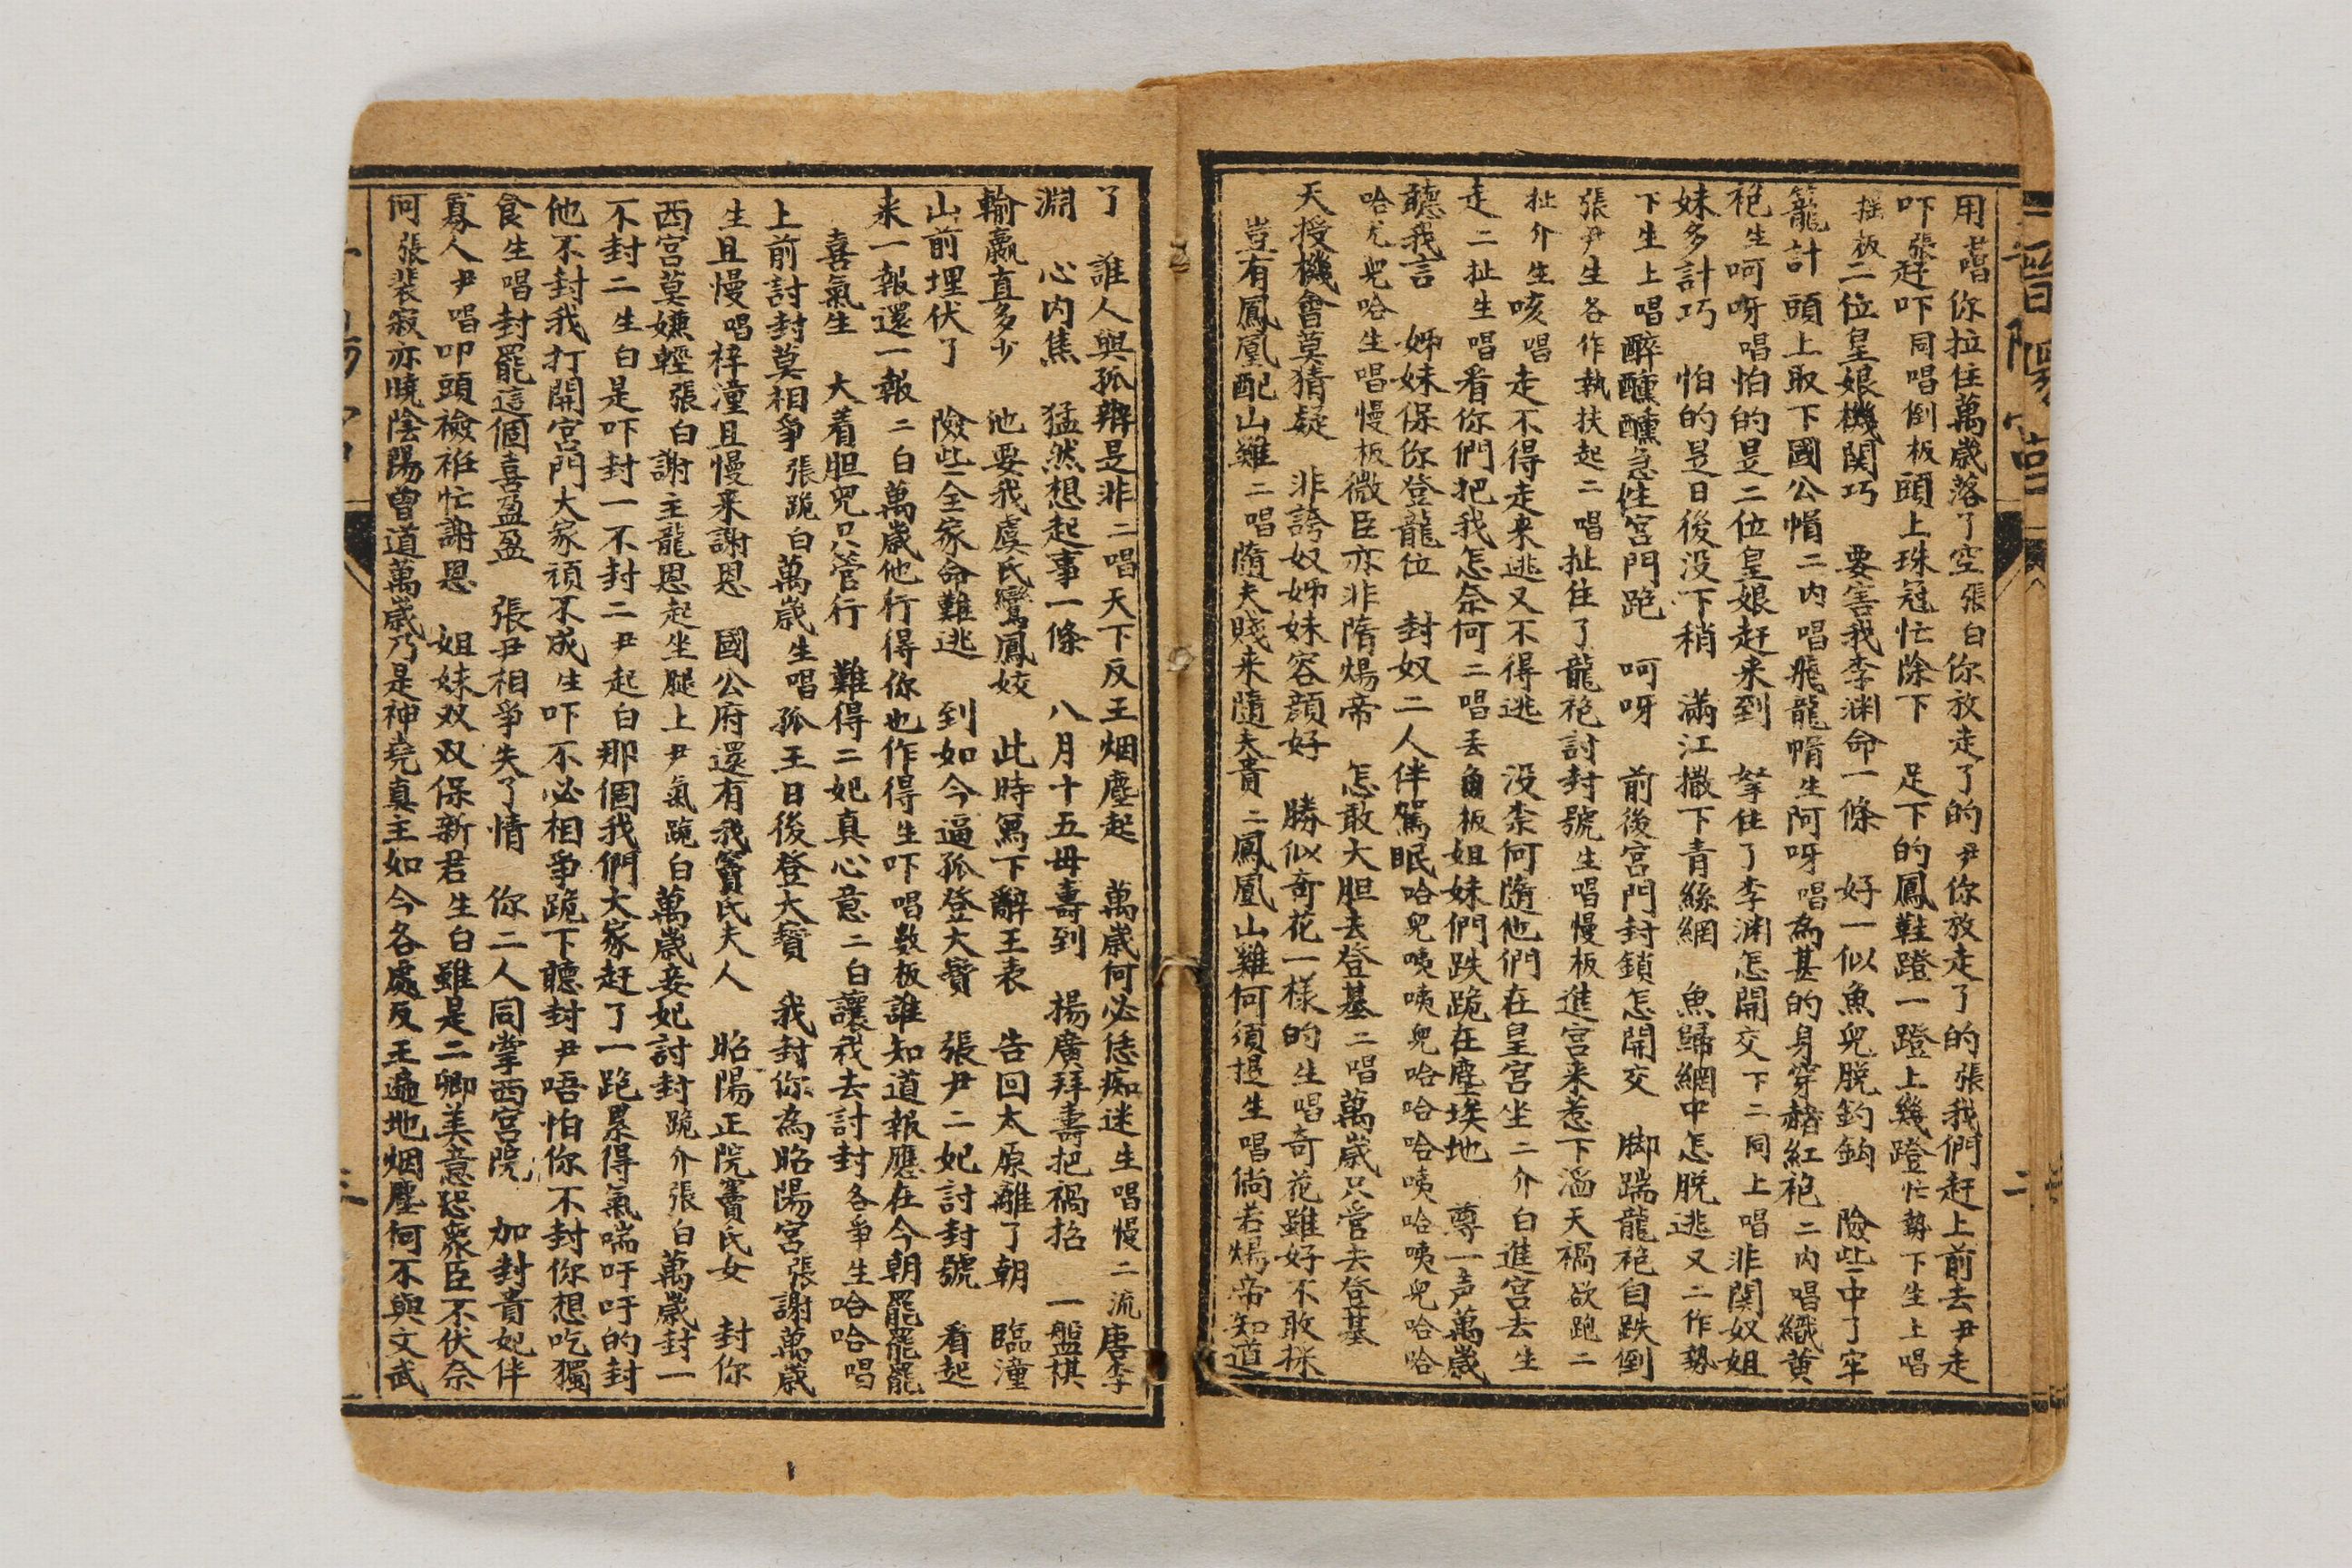 晉陽宮
二
用唱你拉住萬歲落了空張白你放走了的尹你放走了的張我們赶上前去尹走
吓張赶吓同唱倒板頭上珠冠忙除下 足下的鳳鞋蹬一蹬上幾蹬忙勢下生上唱
搖板二位皇娘機関巧 要害我李渊命一條 好一似魚兒脫釣鈎 險些中了牢
籠計 頭上取下國公帽二内唱飛龍帽生阿呀唱為甚的身穿赭紅袍二内唱織黄
袍生呵呀唱怕的是二位皇娘赶来到 拏住了李渊怎開交下二同上唱非関奴姐
妹多計巧 怕的是日後没下稍 滿江撒下青絲網 魚歸網中怎脫逃又二作勢
下生上唱醉醺醺急徃宮門跑 呵呀 前後宮門封鎖怎開交 脚踹龍袍自跌倒
張尹生各作執扶起二唱扯住了龍袍討封號生唱慢板進宮来惹下滔天禍欲跑二
扯介生咳唱走不得走来逃又不得逃 没柰何隨他們在皇宮坐二介白進宮去生
走二扯生唱看你們把我怎奈何二唱丢板姐妹們跌跪在塵埃地 尊一声萬歲
聽我言 姊妹保你登龍位 封奴二人伴駕眠哈兒咦咦兒哈哈哈咦哈咦兒哈哈
哈尤兒哈生唱慢板微臣亦非隋煬帝 怎敢大胆去登基二唱萬歲只管去登基
天授機會莫猜疑 非誇奴姊妹容顔好 勝似奇花一樣的生唱奇花雖好不敢採
豈有鳳凰配山雞二唱隨夫賤来隨夫貴二鳳凰山雞何須提生唱倘若煬帝知道
了 誰人與孤辨是非二唱天下反王烟塵起 萬歲何必恁痴迷生唱慢二流唐李
淵 心内焦 猛然想起事一條 八月十五母壽到 楊廣拜壽把禍招 一盤棋
輸贏直多少 他要我虞氏鸞鳳姣 此時寫下辭王表 告回太原離了朝 臨潼
山前埋伏了 險些全家命難逃 到如今逼孤登大寳 張尹二妃討封號 看起
来一報還一報二白萬歲他行得你也作得生吓唱数板誰知道報應在今朝罷罷罷
喜氣生 大着胆兒只管行 難得二妃真心意二白讓我去討封各爭生哈哈唱
上前討封莫相爭張跪白萬歲生唱孤王日後登大寳 我封你為昭陽宮張謝萬歲
生且慢唱梓潼且慢来謝恩 國公府還有我竇氏夫人 昭陽正院竇氏女 封你
西宮莫嫌輕張白謝主龍恩起坐腿上尹氣跪白萬歲妾妃討封跪介張白萬歲封一
不封二生白是吓封一不封二尹起白那個我們大家赶了一跑累得氣喘吁吁的封
他不封我打開宮門大家頑不成生吓不必相爭跪下聽封尹唔怕你不封你想吃獨
食生唱封罷這個喜盈盈 張尹相爭失了情 你二人同掌西宮院 加封貴妃伴
寡人尹唱叩頭襝衽忙謝恩 姐妹双双保新君生白雖是二卿美意恐衆臣不伏奈
何張裴寂亦曉陰陽曾道萬歲乃是神堯真主如今各處反王遍地烟塵何不與文武
三